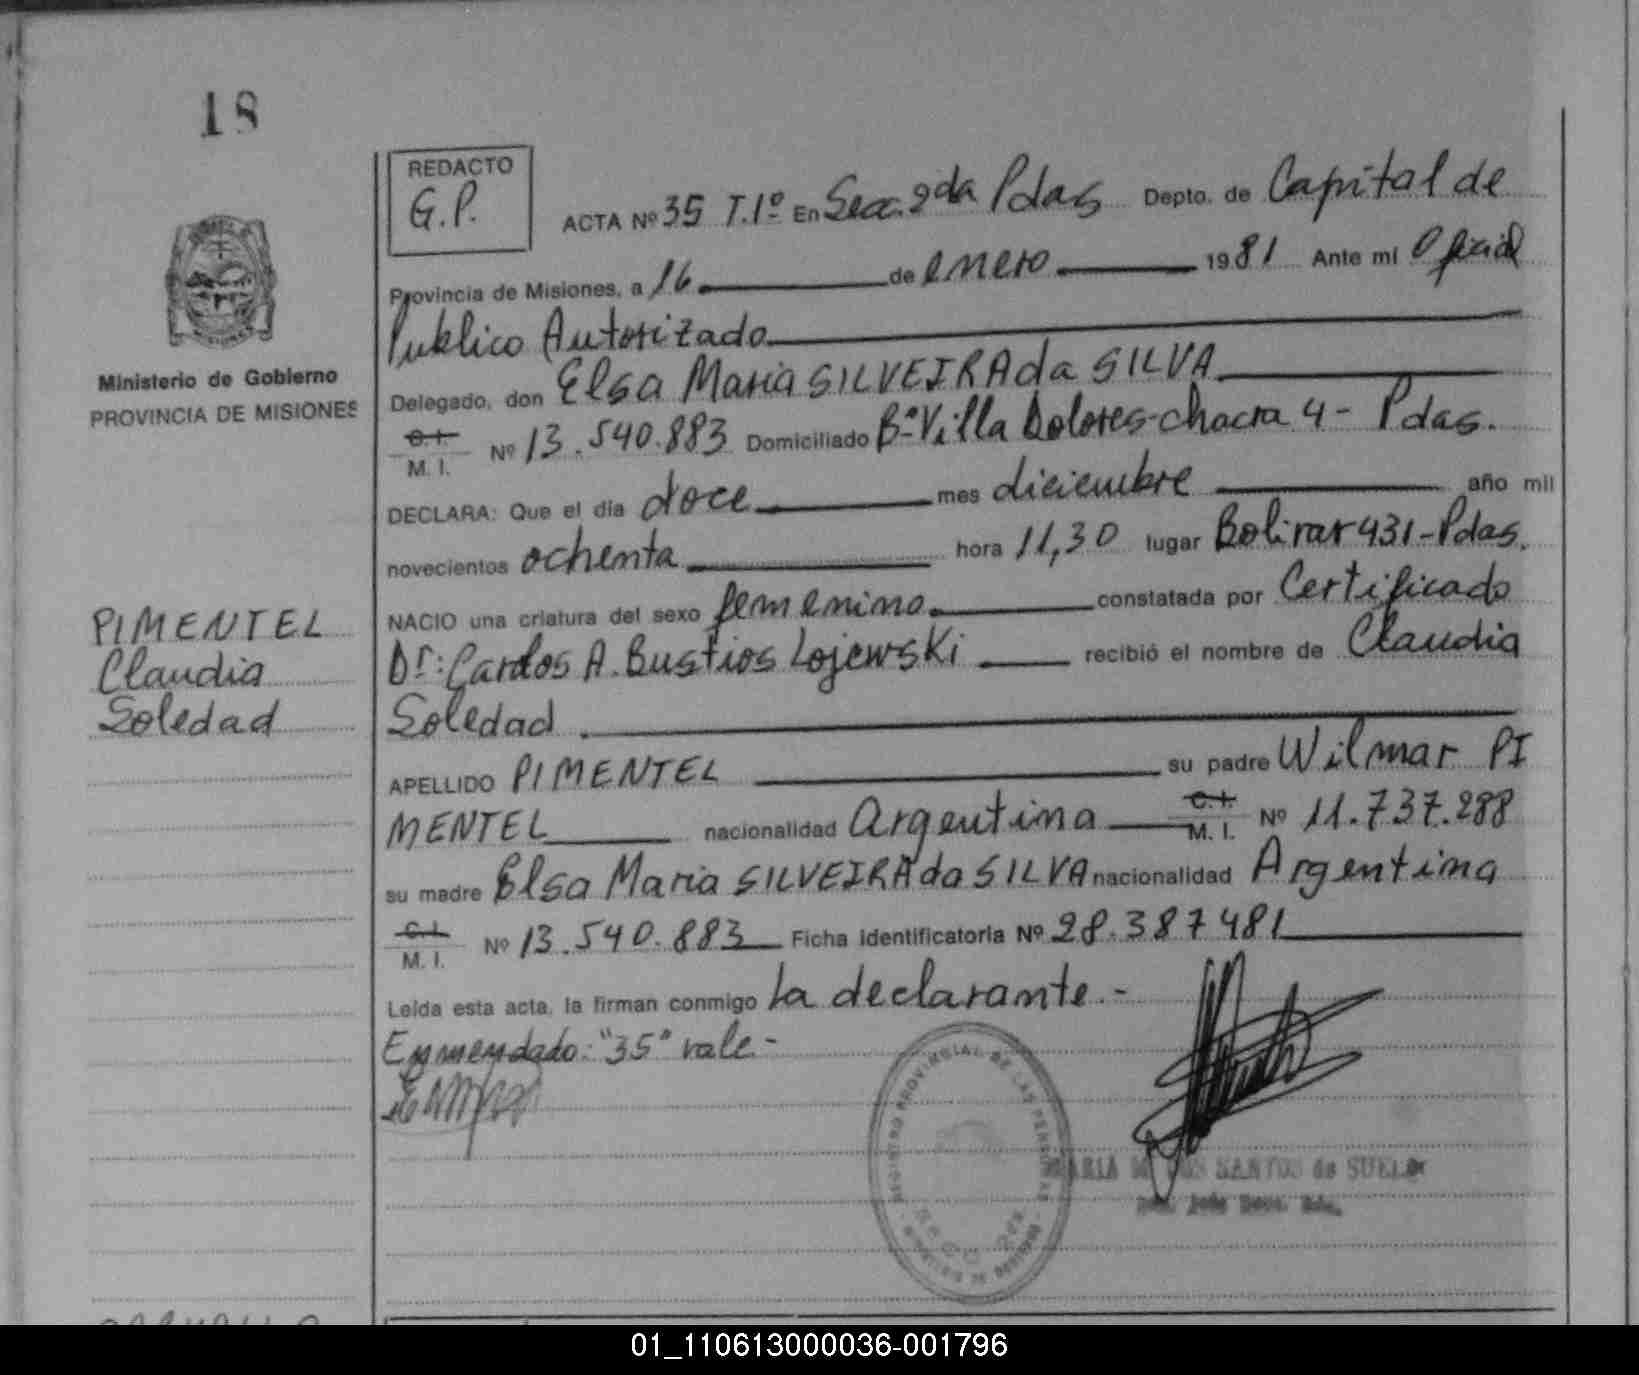 18
REDACTO
G.P.
ACTA Nº 35 T.1º En Secc. 2da Pdas Depto. de Capital de
Provincia de Misiones, a 16 de enero 1981 Ante mi Oficial
Publico Autorizado
Ministerio de Gobierno
PROVINCIA DE MISIONES
Delegado, don Elsa Maria SILVEIRA da SILVA
C.I.
M.I. Nº 13.540.883 Domiciliado Bº Villa Dolores-chacra 4- Pdas.
DECLARA: Que el dia doce mes diciembre año mil
novecientos ochenta hora 11,30 lugar Bolivar 431-Pdas.
NACIO una criatura del sexo femenino constatada por Certificado
Dr: Carlos A. Bustios Lojewski recibió el nombre de Claudia
Soledad
PIMENTEL
Claudia
Soledad
APELLIDO PIMENTEL su padre Wilmar PI
MENTEL nacionalidad Argentina C.I. M.I. Nº 11.737.288
su madre Elsa Maria SILVEIRA da SILVA nacionalidad Argentina
C.I.
M.I. Nº 13.540.883 Ficha Identificatoria Nº 28.387481
Leida esta acta, la firman conmigo la declarante.-
Enmendado: "35" vale-
REGISTRO PROVINCIAL DE LAS PERSONAS
MARIA SANTOS de SUELDO
01_110613000036-001796